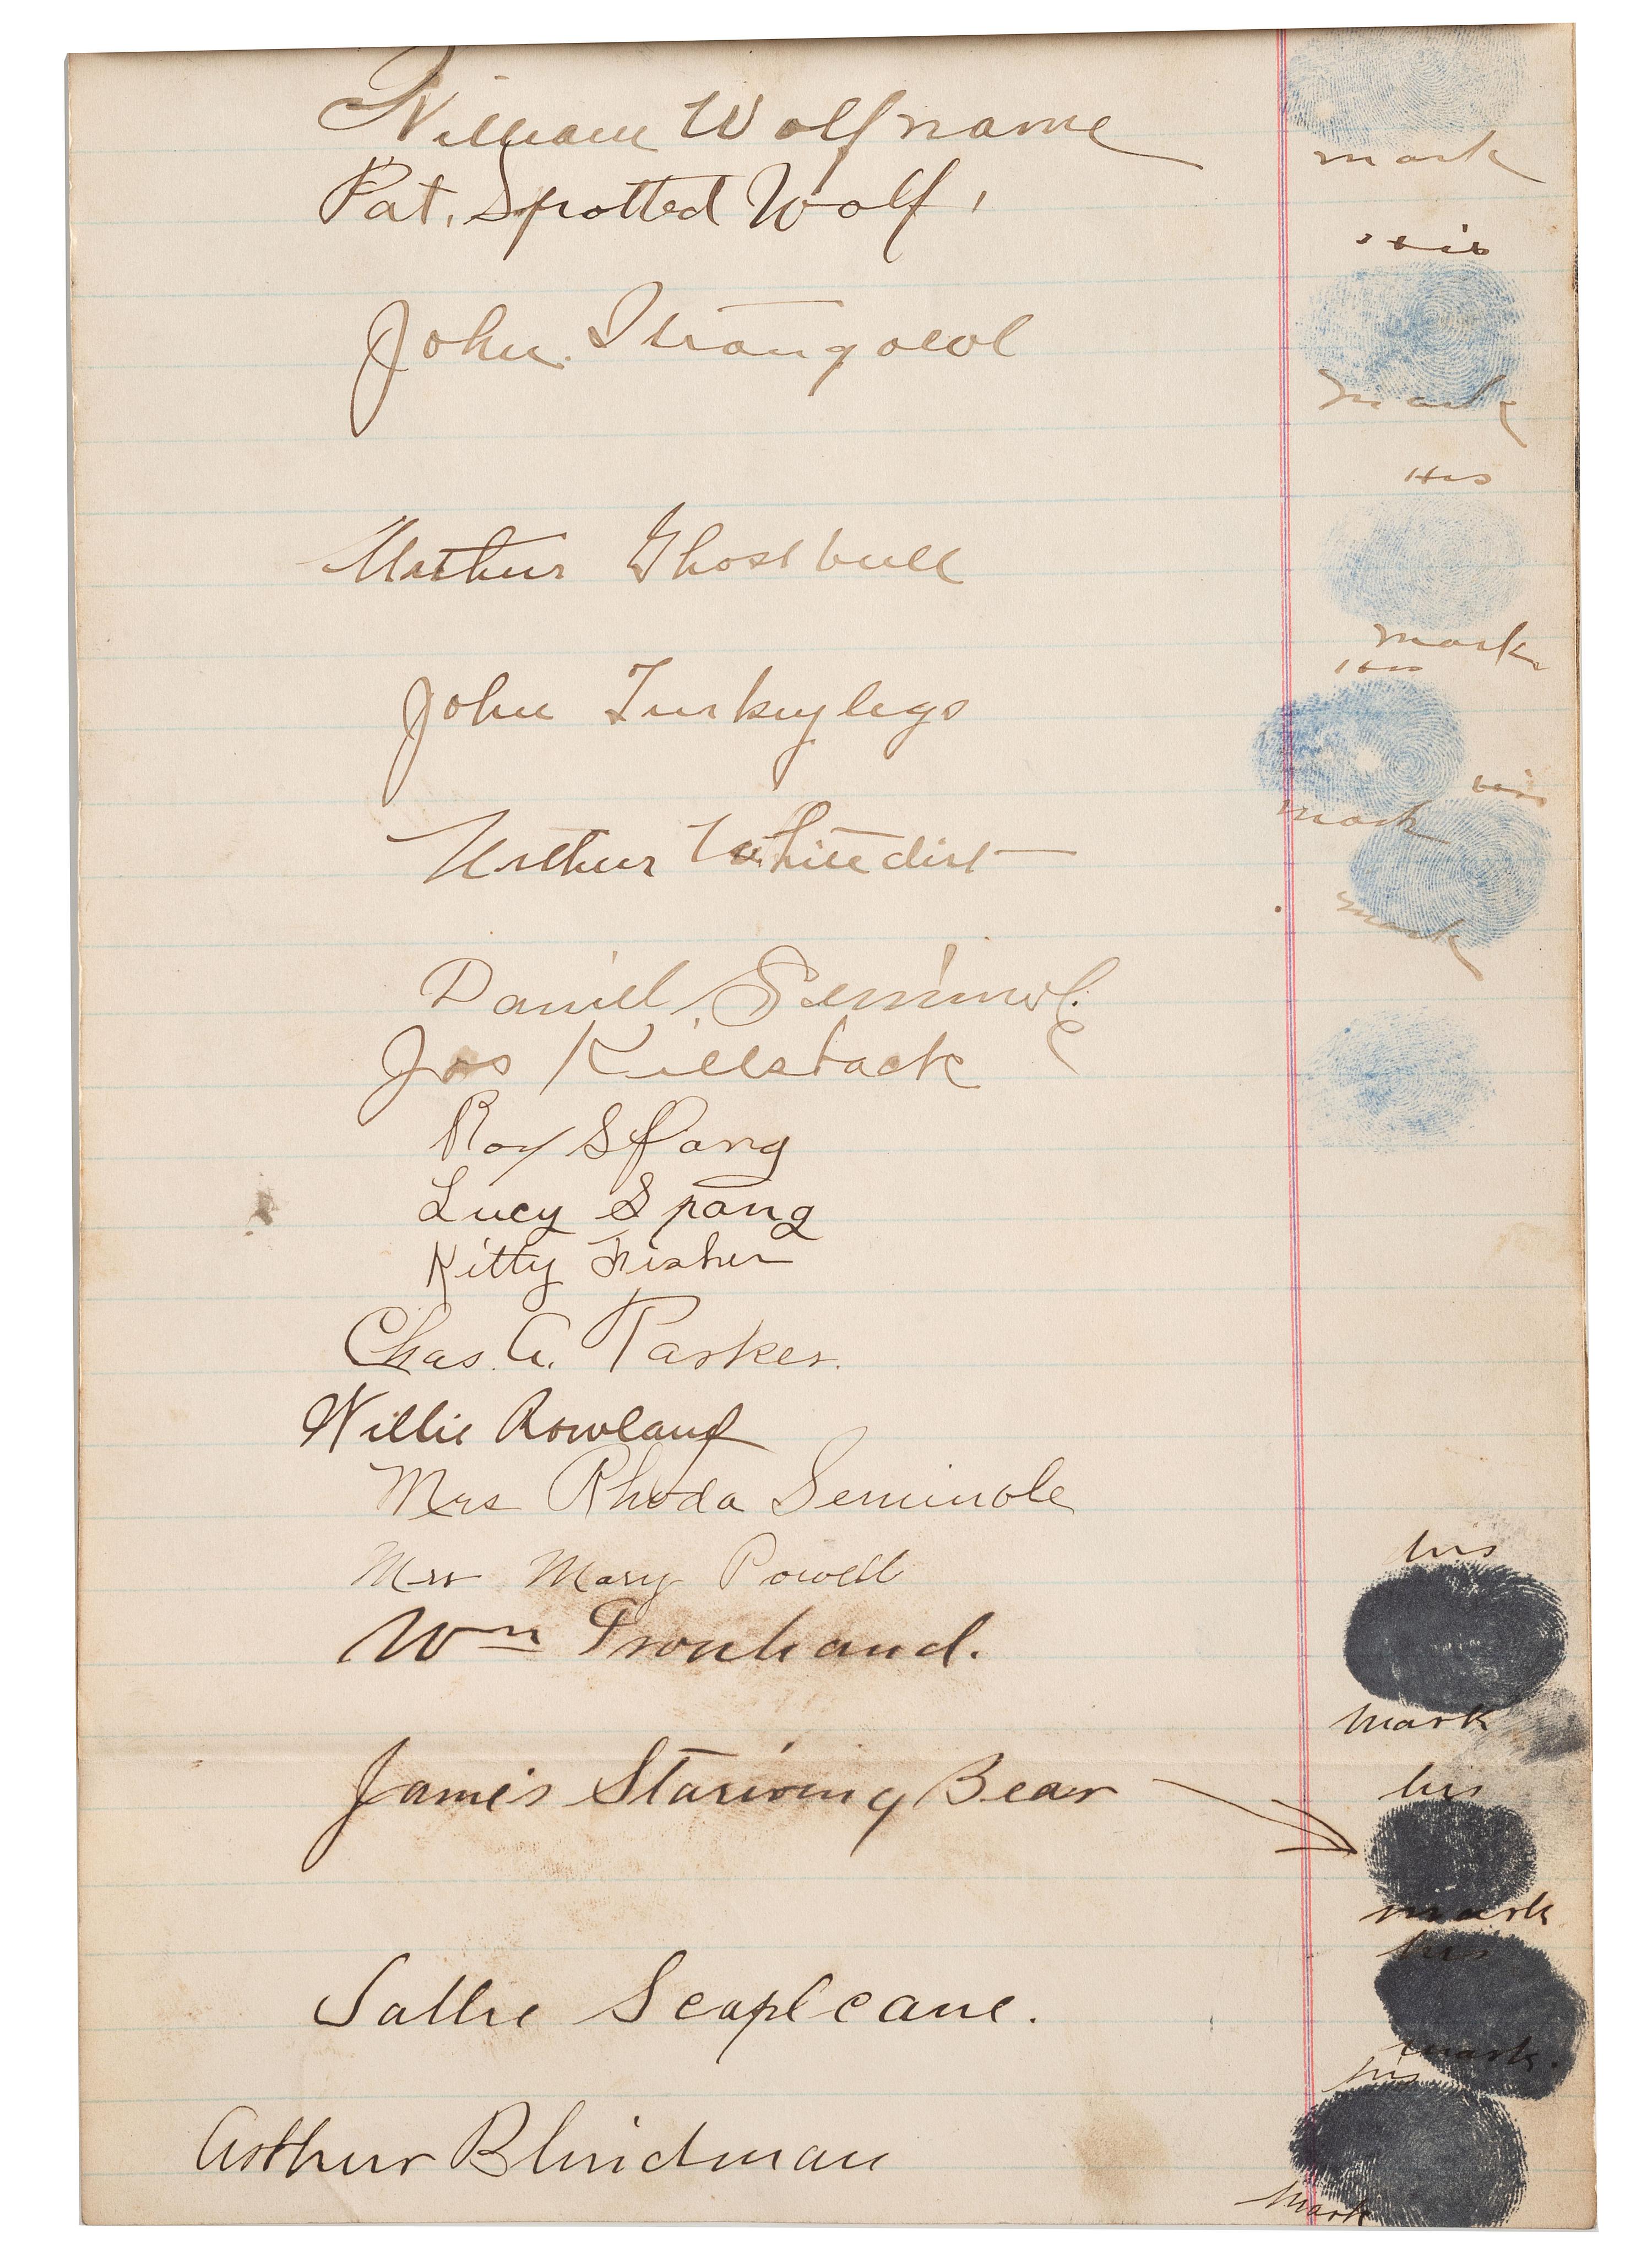 William Wolfname
mark
Pat. Spotted Wolf,
his
John. Strangowl
mark
His
Arthur Ghostbull
mark
His
John Turkeylegs
mark
his
Arthur Whitedirt
mark
Daniel. Seminole
Jos Killsback
Roy Spang
Lucy Spang
Kitty Fisher
Chas. A. Parker.
Willie Rowland
Mrs Rhoda Seminole
Mrs Mary Powell
his
Wm Ironhand.
mark
James Starving Bear
his
mark
his
Sallie Scaplcane.
mark.
his
Arthur Blindman
mark